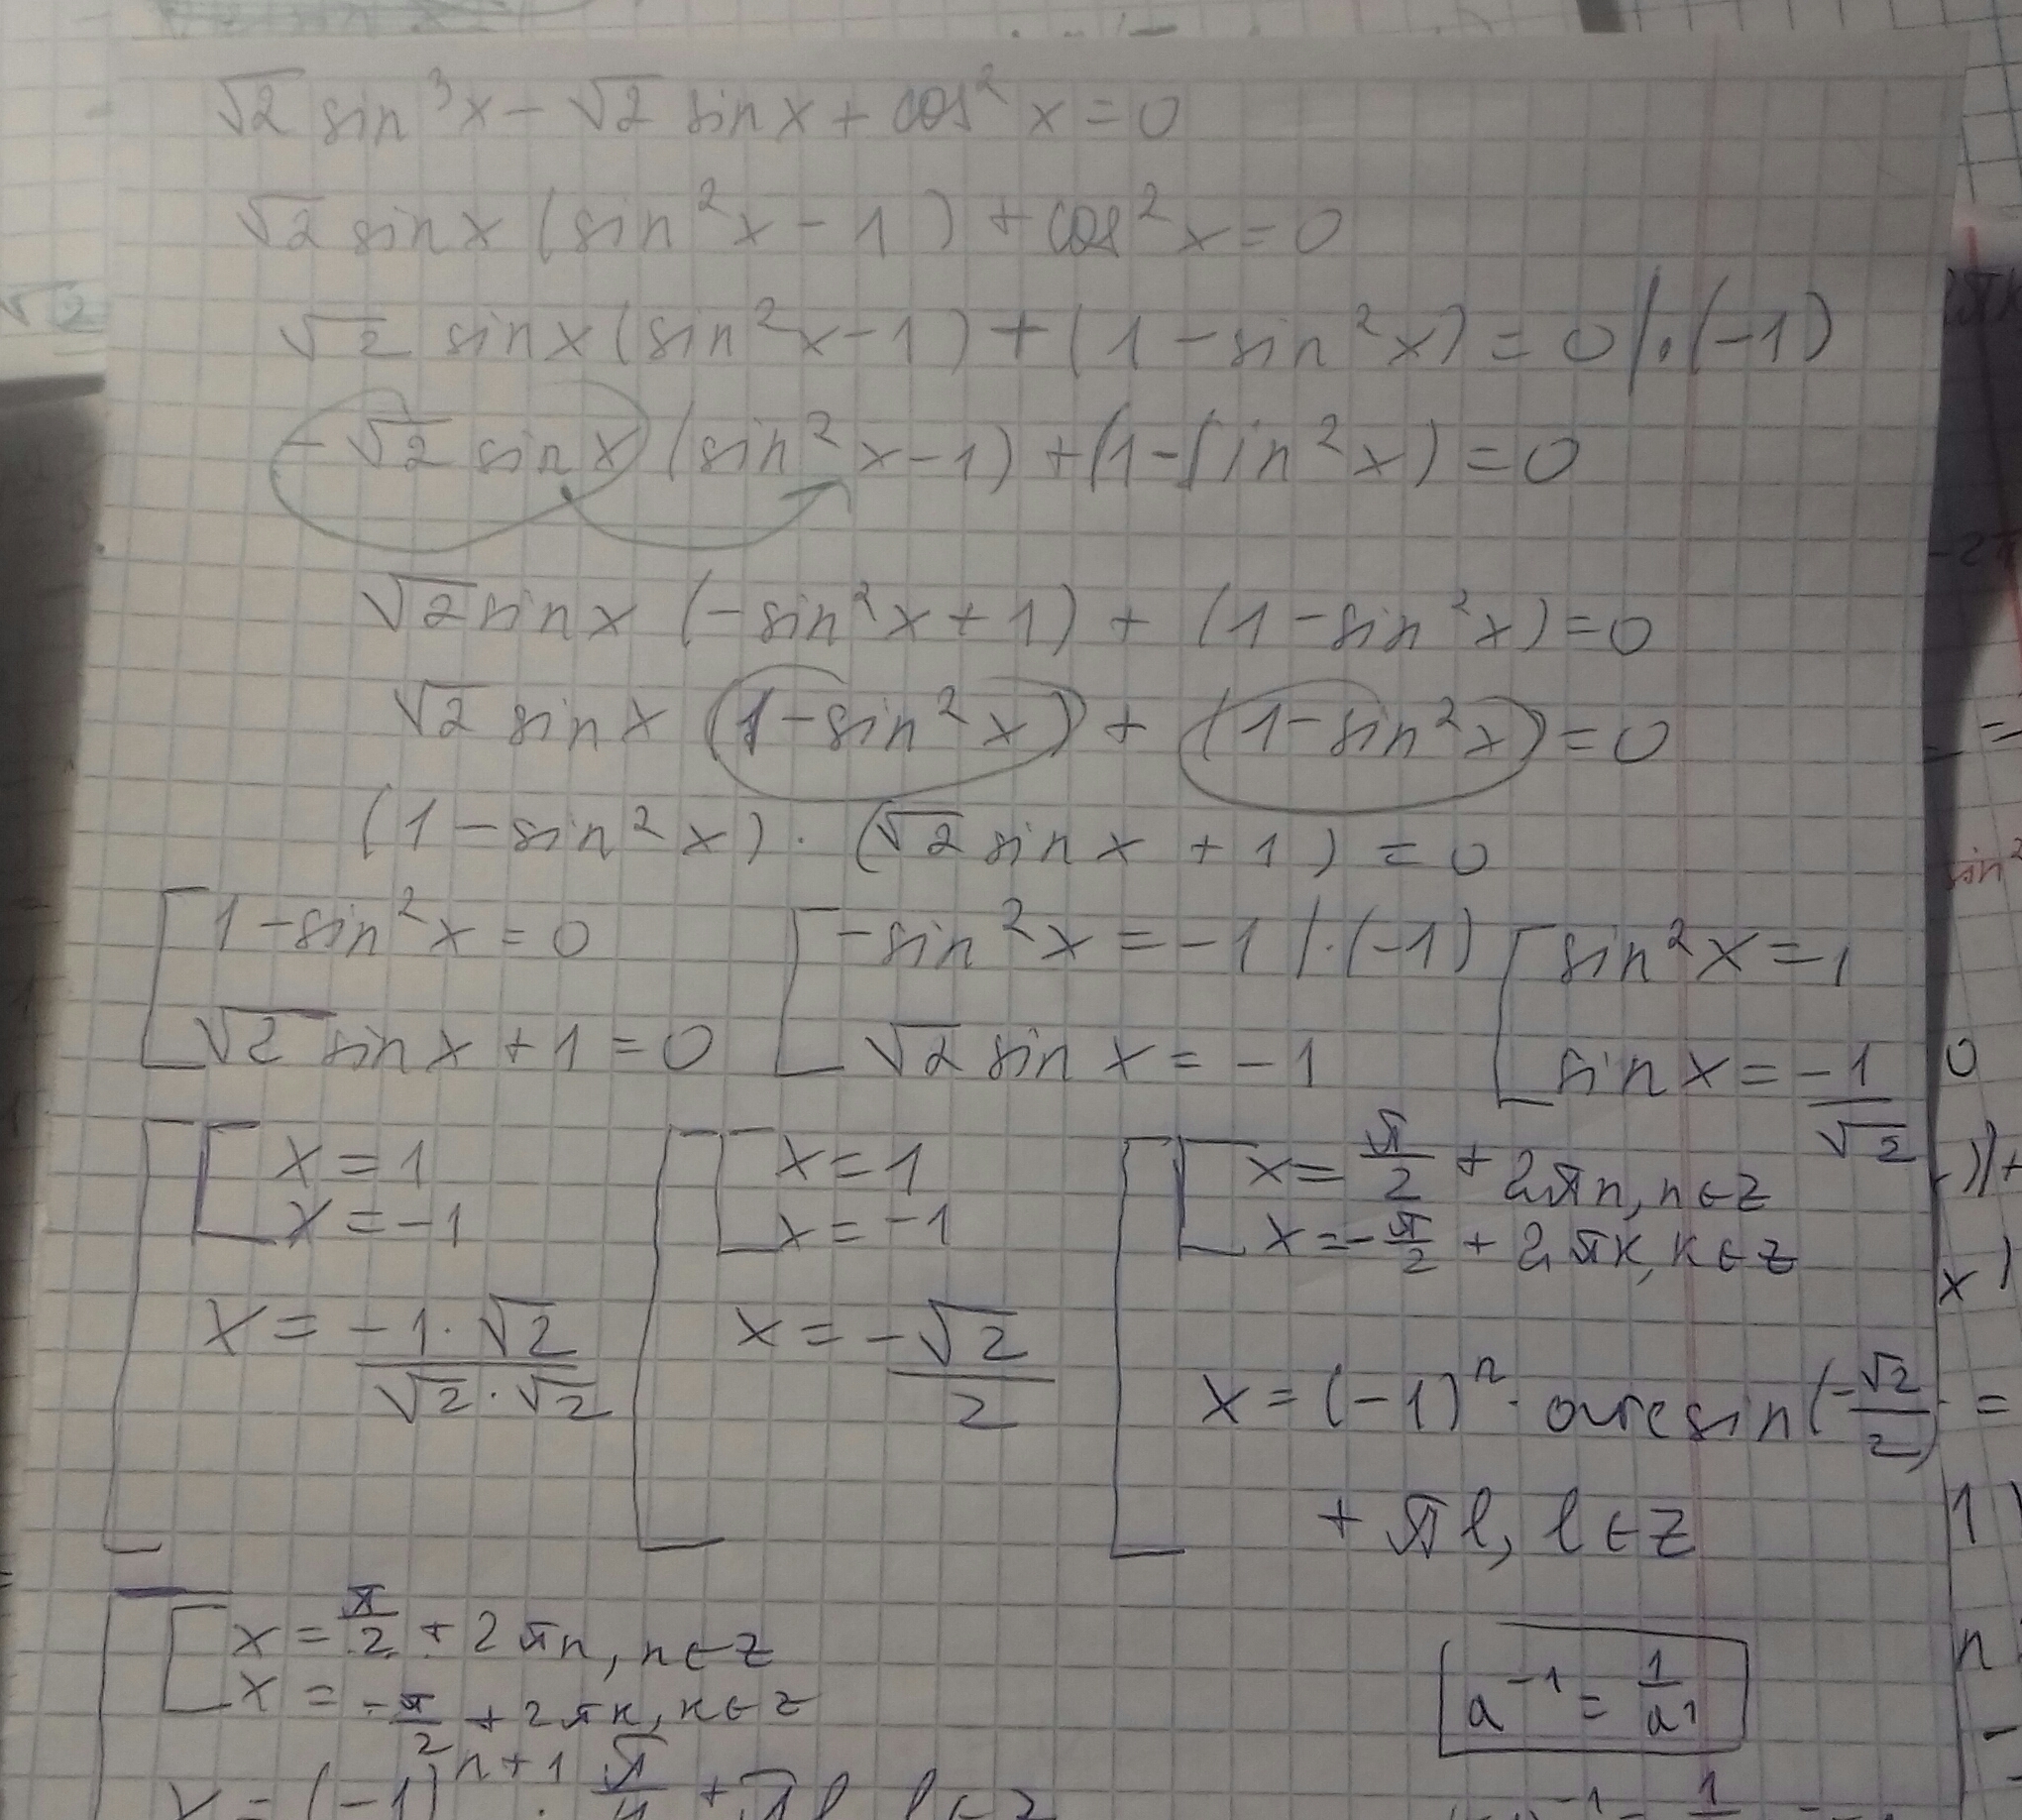 √2 sin³x - √2 sinx + cos²x = 0
√2 sinx (sin²x - 1) + cos²x = 0
√2 sinx (sin²x - 1) + (1 - sin²x) = 0 | · (-1)
-√2 sinx (sin²x - 1) + (1 - sin²x) = 0
√2 sinx (-sin²x + 1) + (1 - sin²x) = 0
√2 sinx (1 - sin²x) + (1 - sin²x) = 0
(1 - sin²x) · (√2 sinx + 1) = 0
[ 1 - sin²x = 0 [ -sin²x = -1 | · (-1) [ sin²x = 1
√2 sinx + 1 = 0 √2 sinx = -1 sinx = -1/√2
[ [ x = 1 [ [ x = 1 [ [ x = π/2 + 2πn, n ∈ z
x = -1 x = -1 x = -π/2 + 2πk, k ∈ z
x = -1·√2/√2·√2 x = -√2/2 x = (-1)ⁿ · arcsin(-√2/2) =
+ πl, l ∈ z
[ [ x = π/2 + 2πn, n ∈ z
x = -π/2 + 2πk, k ∈ z
a⁻¹ = 1/a¹
x = (-1)ⁿ⁺¹ · π/4 + πl, l ∈ z